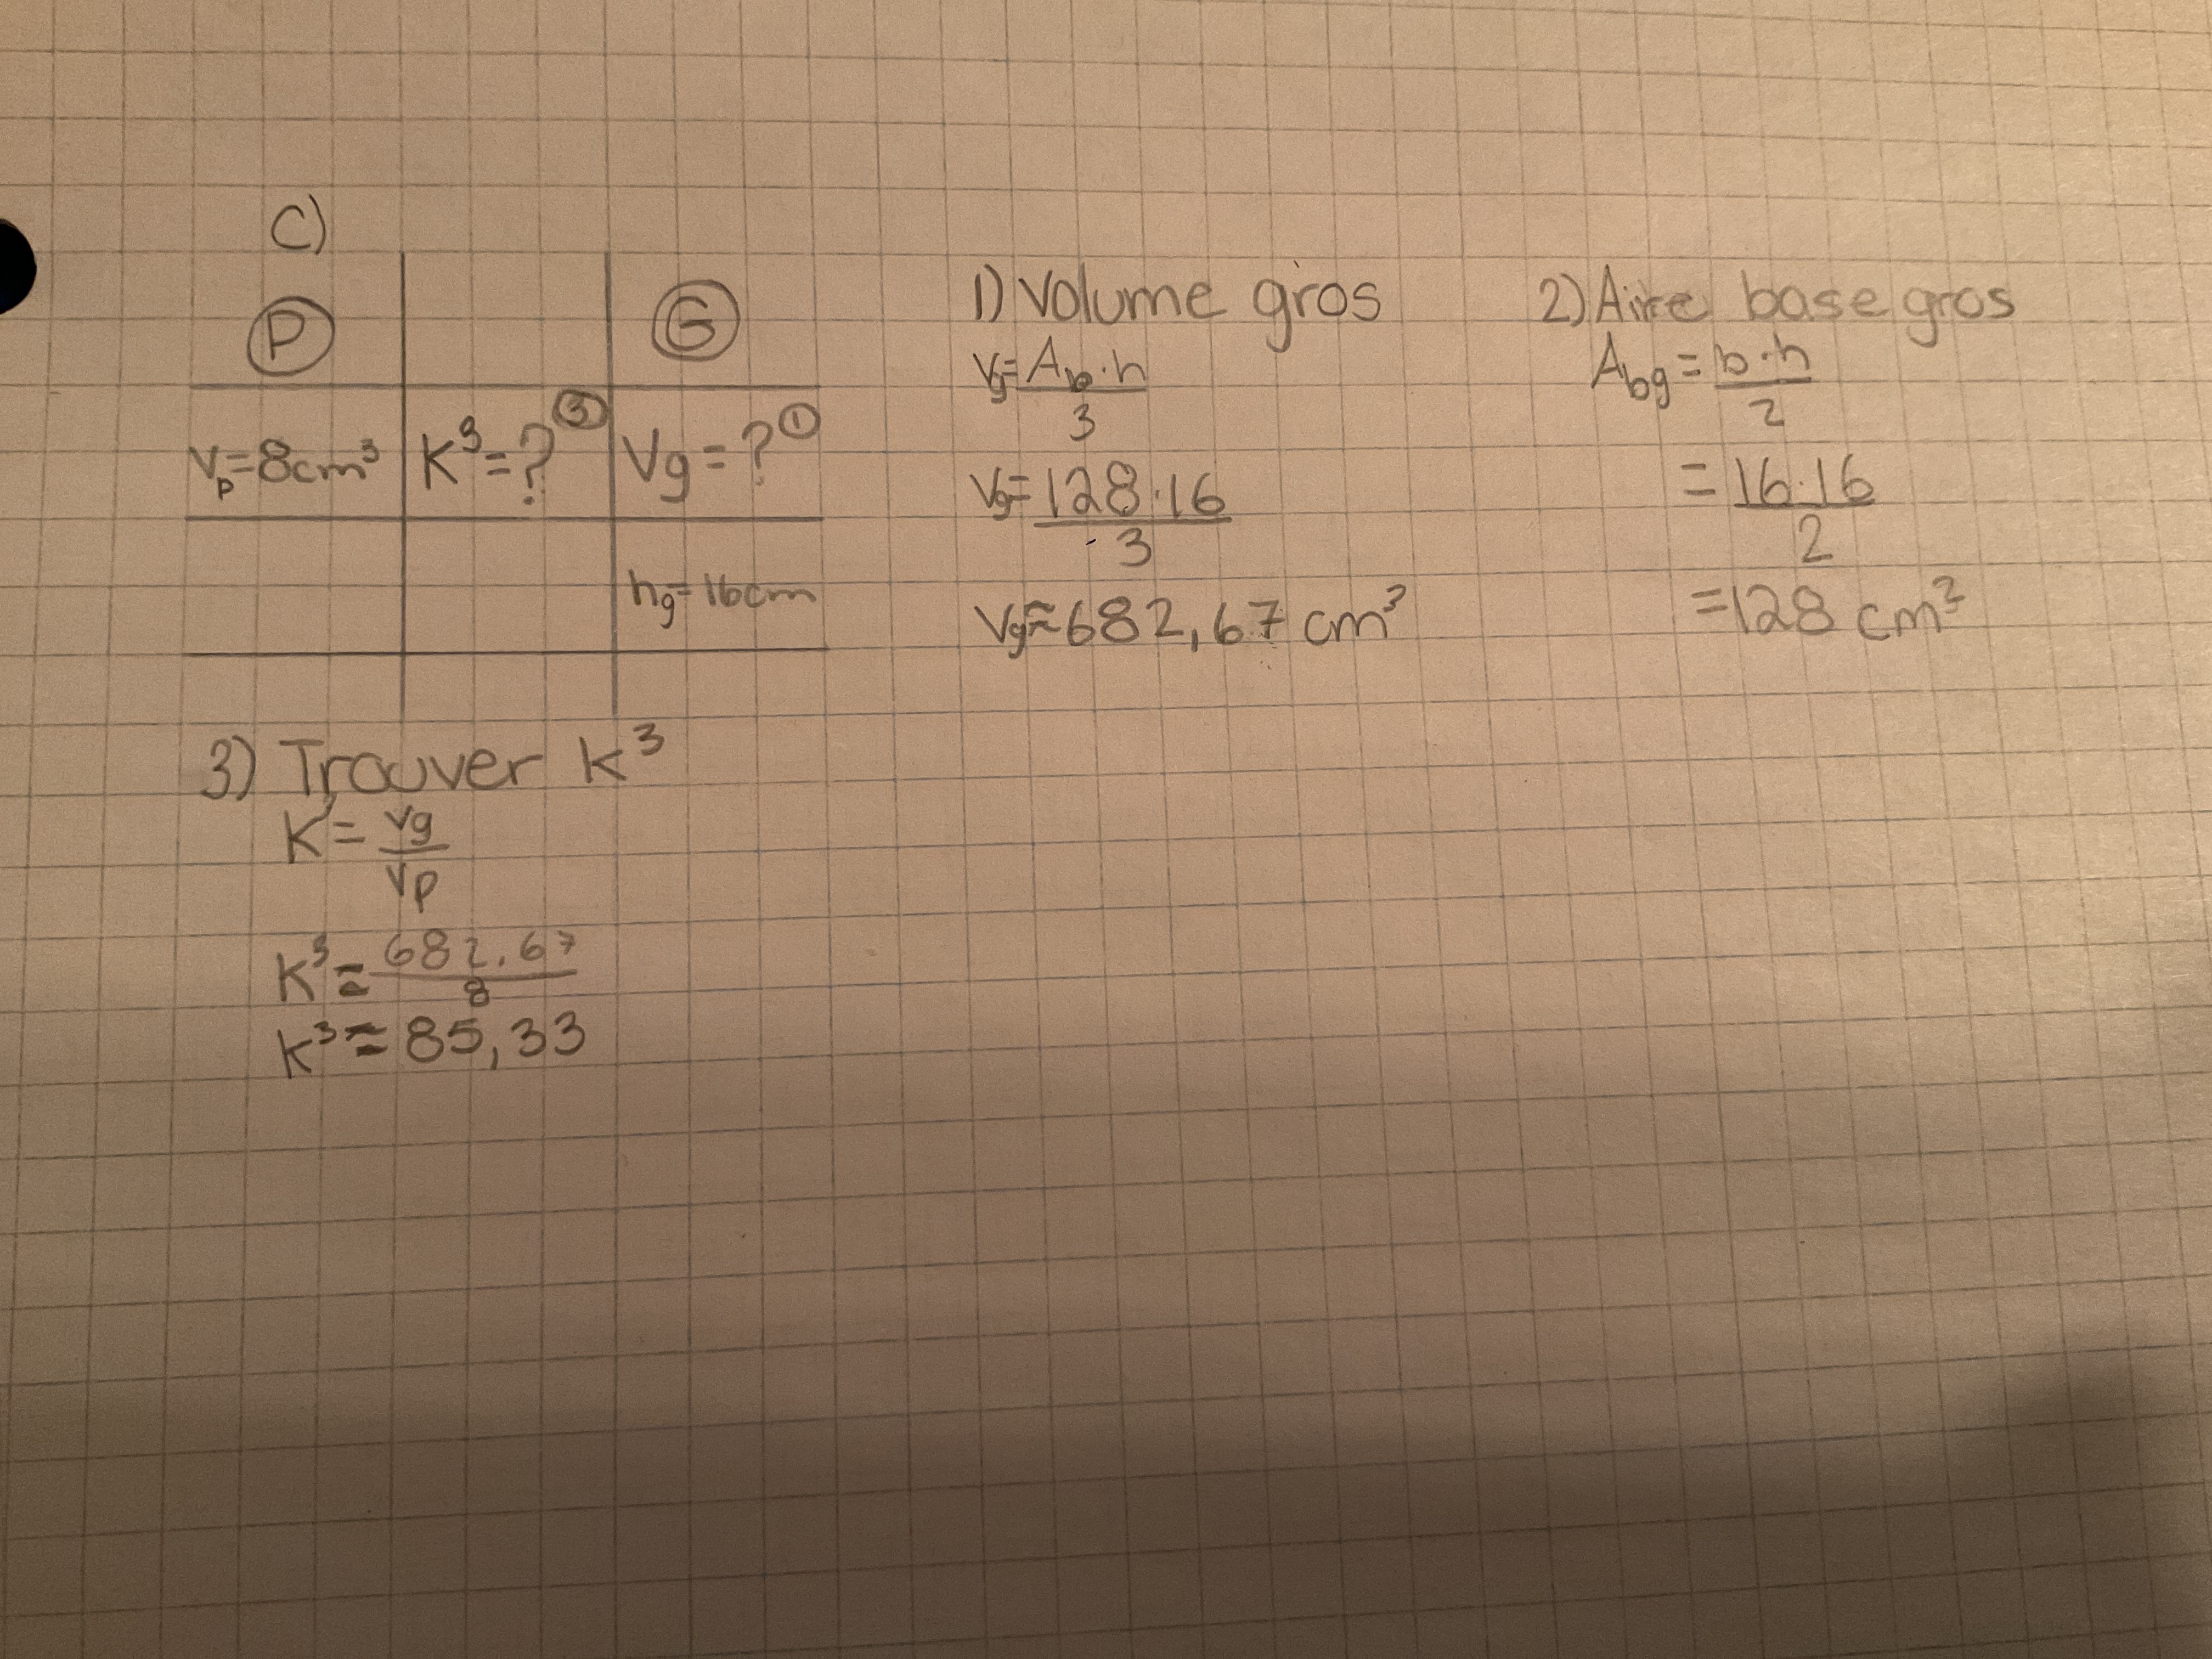 C)
P G
Vp=8cm³ K³=? ③ Vg=? ①
hg=16cm
1) Volume gros
Vg=Ab·h
3
Vg=128·16
3
Vg≈682,67 cm³
2) Aire base gros
Abg=b·h
2
=16·16
2
=128 cm²
3) Trouver K³
K³=Vg
Vp
K³≈682,67
8
K³≈85,33